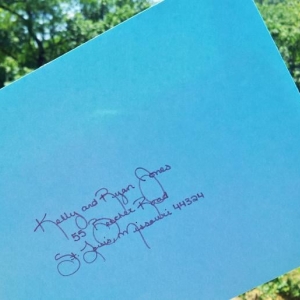 Kelly and Ryan Jones
55 Road
St. Louis, Missouri 44324